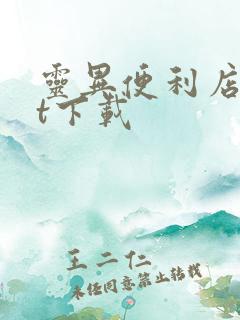 靈異便利店
t下載
王二仁
未经同意禁止转载